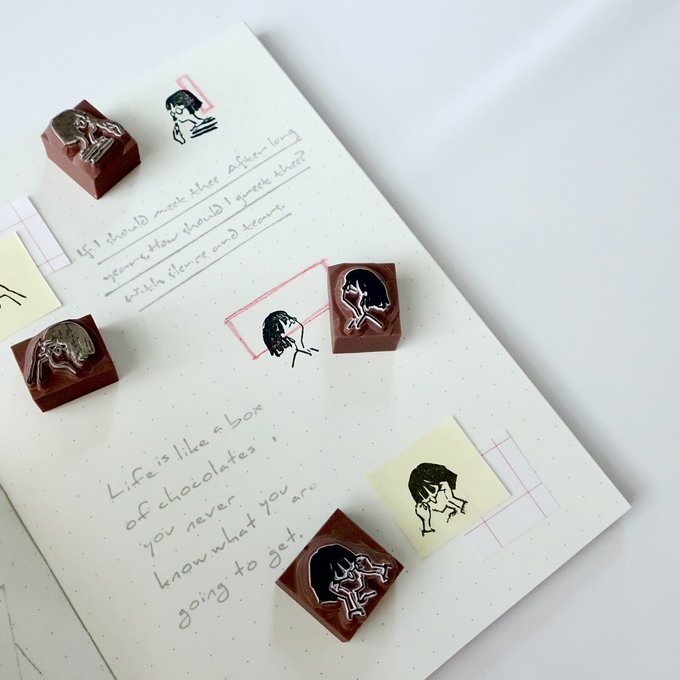 If I should meet thee After long
years, How should I greet thee?
With silence and tears.
Life is like a box
of chocolates,
you never
know what you are
going to get.